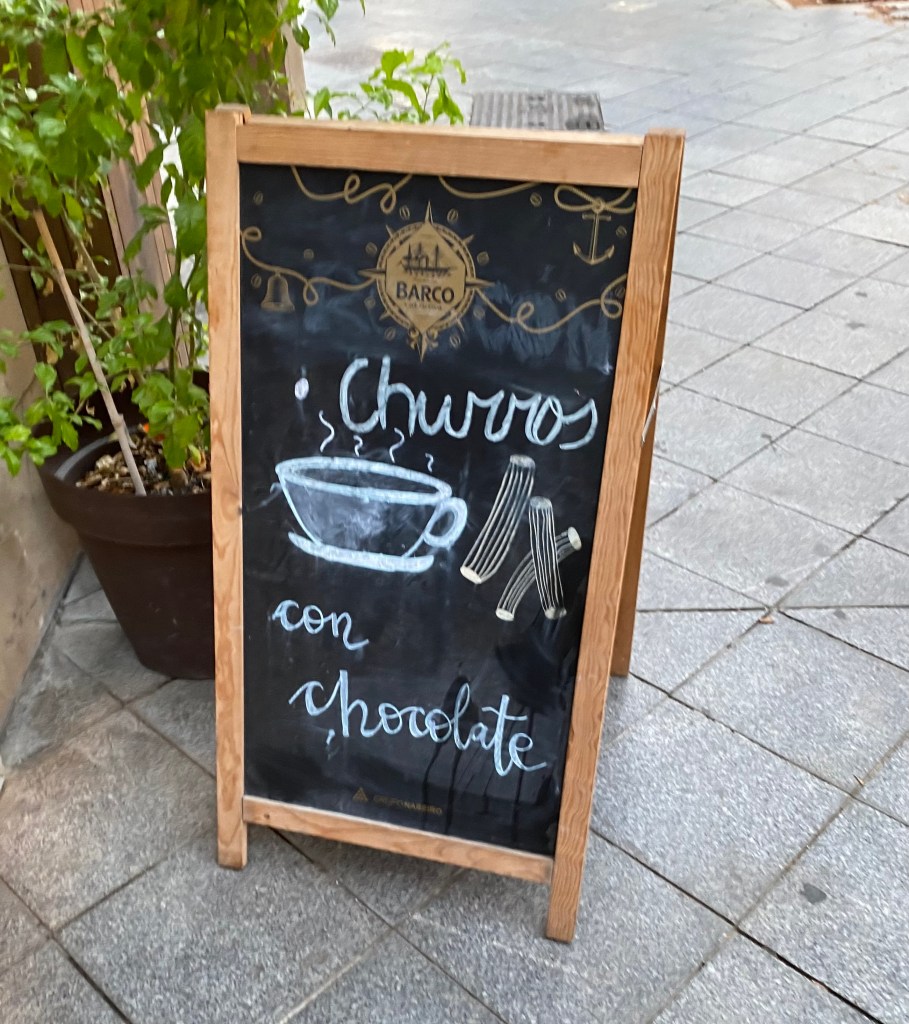 BARCO
Churros
con
chocolate
GRUPO NABEIRO